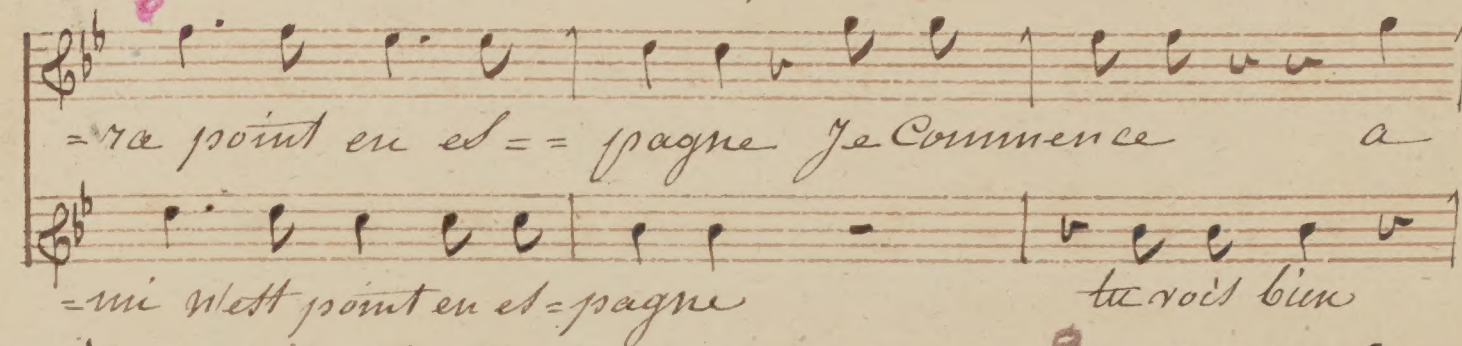 =ra point en es== pagne Je Commence a
=mi n'est point en es=pagne tu vois bien